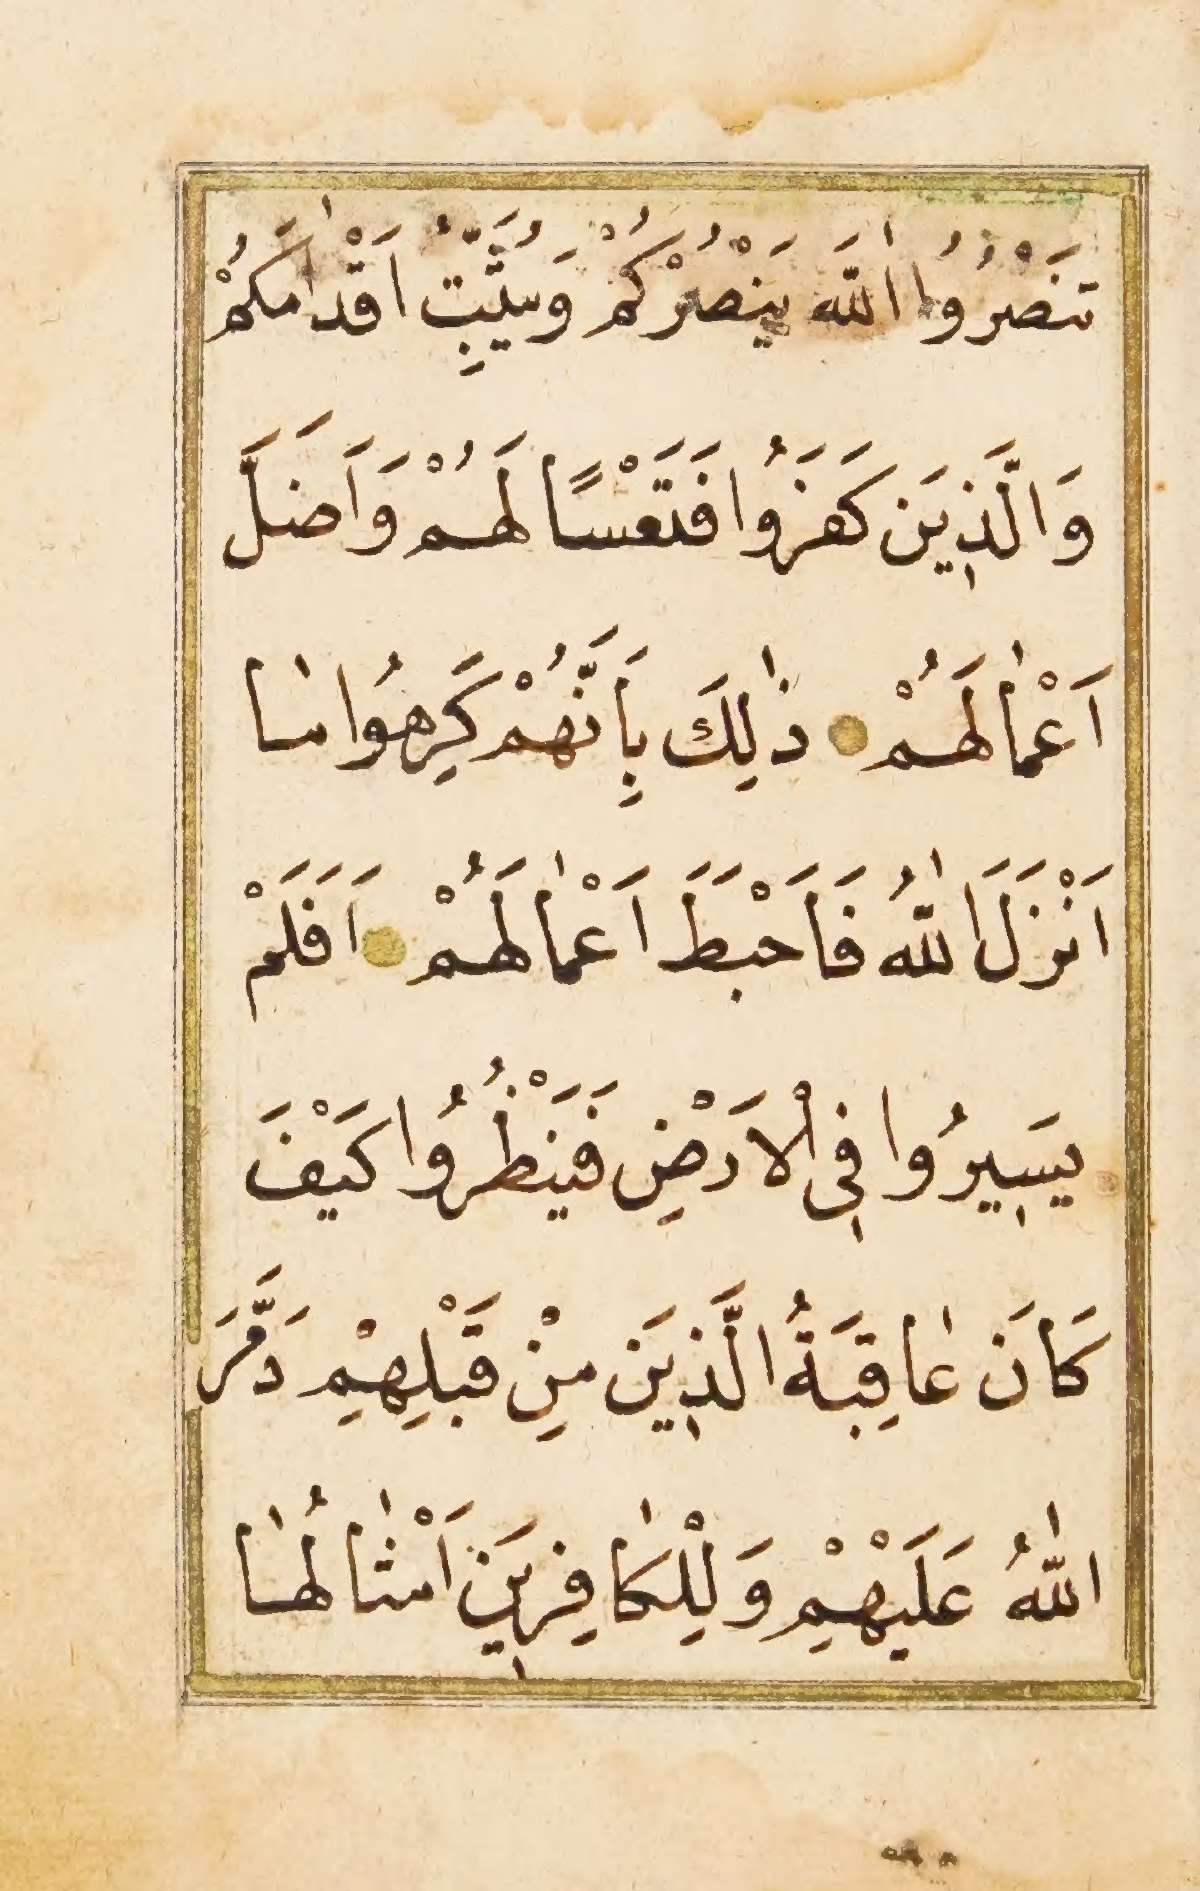 تَنْصُرُوا اللّٰهَ يَنْصُرْكُمْ وَيُثَبِّتْ اَقْدَامَكُمْ
وَالَّذِينَ كَفَرُوا فَتَعْسًا لَهُمْ وَاَضَلَّ
اَعْمَالَهُمْ ذٰلِكَ بِاَنَّهُمْ كَرِهُوا مَا
اَنْزَلَ اللّٰهُ فَاَحْبَطَ اَعْمَالَهُمْ اَفَلَمْ
يَسِيرُوا فِى الْاَرْضِ فَيَنْظُرُوا كَيْفَ
كَانَ عَاقِبَةُ الَّذِينَ مِنْ قَبْلِهِمْ دَمَّرَ
اللّٰهُ عَلَيْهِمْ وَلِلْكَافِرِينَ اَمْثَالُهَا